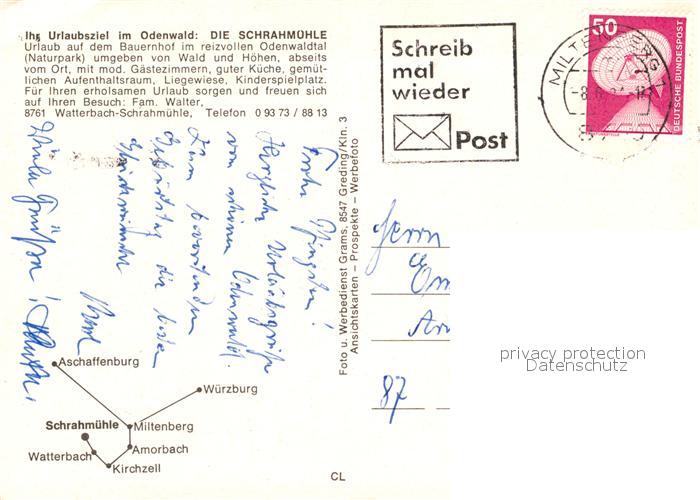 Ihr Urlaubsziel im Odenwald: DIE SCHRAHMÜHLE
Urlaub auf dem Bauernhof im reizvollen Odenwaldtal
(Naturpark) umgeben von Wald und Höhen, abseits
vom Ort, mit mod. Gästezimmern, guter Küche, gemüt-
lichen Aufenthaltsraum, Liegewiese, Kinderspielplatz.
Für Ihren erholsamen Urlaub sorgen und freuen sich
auf Ihren Besuch: Fam. Walter,
8761 Watterbach-Schrahmühle, Telefon 0 93 73 / 88 13
Schreib
mal
wieder
Post
MILTENBERG 1
50
DEUTSCHE BUNDESPOST
Frohe Pfingsten!
Herzliche Urlaubsgrüße
vom schönen Odenwald.
Zum bevorstehenden
Geburtstag die besten
Glückwünsche
Viele Grüße!
Foto u. Werbedienst Grams, 8547 Greding/Kin. 3
Ansichtskarten – Prospekte – Werbefoto
Herrn
87
privacy protection
Datenschutz
Aschaffenburg
Würzburg
Schrahmühle
Miltenberg
Amorbach
Watterbach
Kirchzell
CL